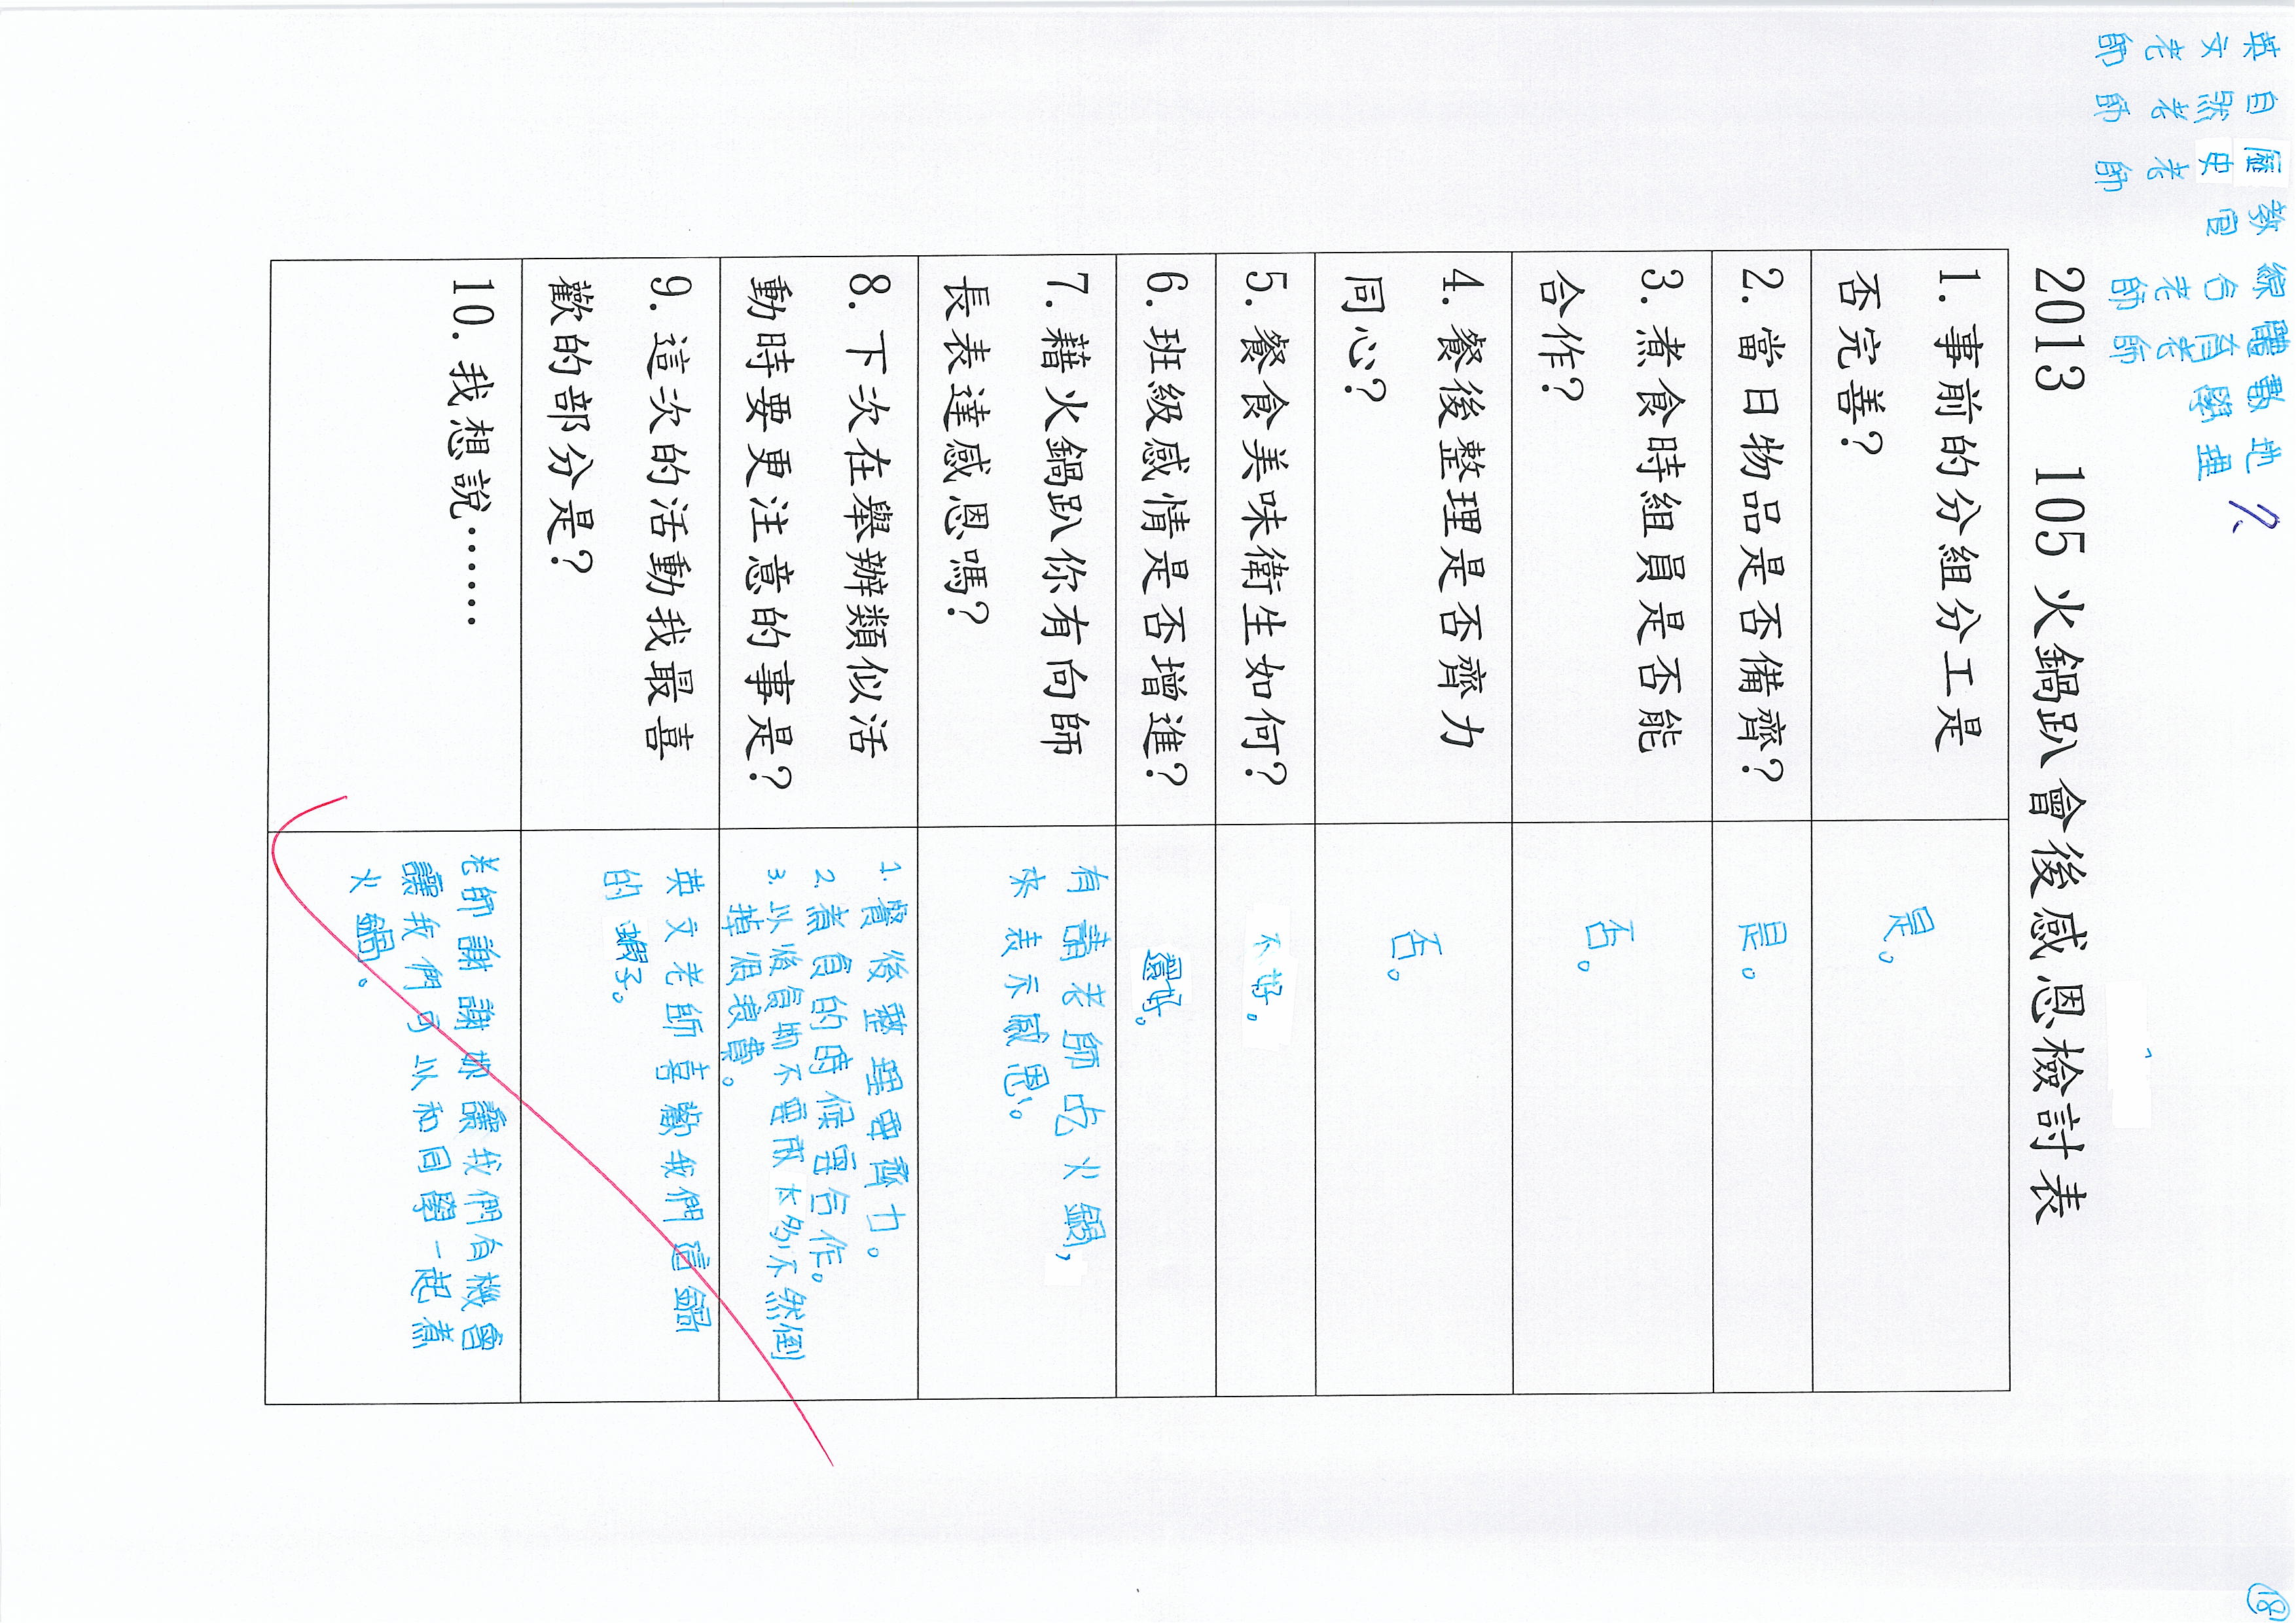 英文老師
自然老師
歷史老師
教官
綜合老師
體育老師
數學
地理
18
2013 105火鍋趴會後感恩檢討表
1.事前的分組分工是
否完善?
是。
2.當日物品是否備齊?
是。
3.煮食時組員是否能
合作?
否。
4.餐後整理是否齊力
同心?
否。
5.餐食美味衛生如何?
不好。
6.班級感情是否增進?
還好。
7.藉火鍋趴你有向師
長表達感恩嗎?
有請老師吃火鍋,
來表示感恩。
8.下次在舉辦類似活
動時要更注意的事是?
1.餐後整理要齊力。
2.煮食的時候要合作。
3.以後食物不要煮太多,不然倒
掉很浪費。
9.這次的活動我最喜
歡的部分是?
英文老師喜歡我們這鍋
的蝦子。
10.我想說……
老師謝謝妳讓我們有機會
讓我們可以和同學一起煮
火鍋。